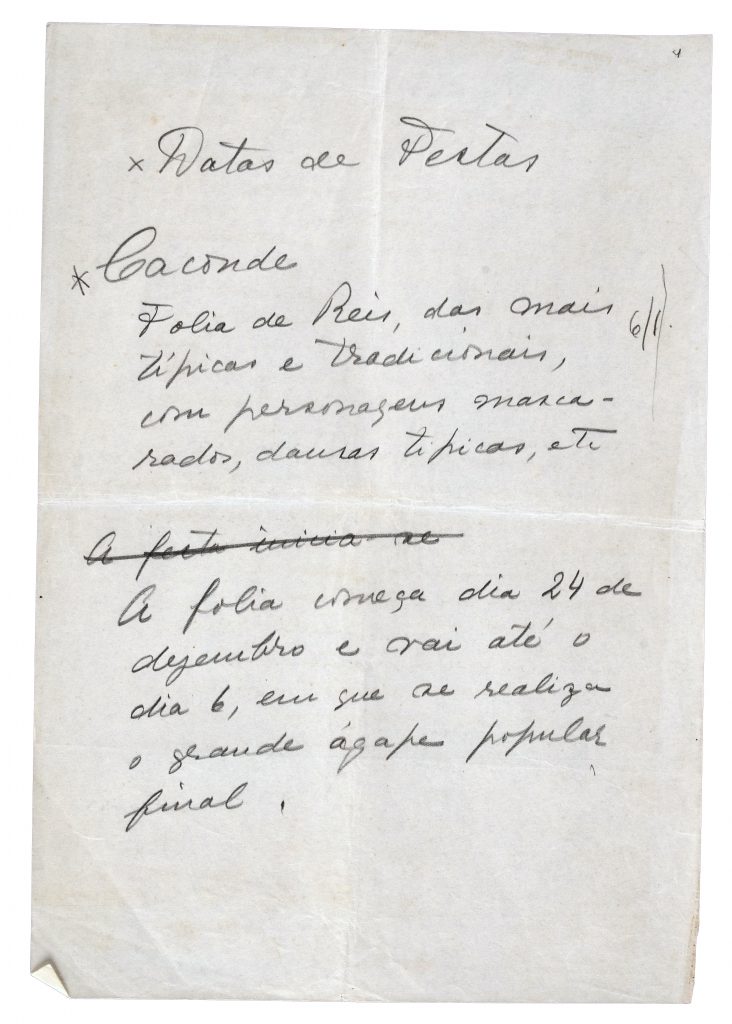 × Datas de Festas
* Caconde
Folia de Reis, das mais 6/1
típicas e tradicionais,
com personagens masca-
rados, danças típicas, etc
A festa inicia-se
A folia começa dia 24 de
dezembro e vai até o
dia 6, em que se realiza
o grande ágape popular
final.